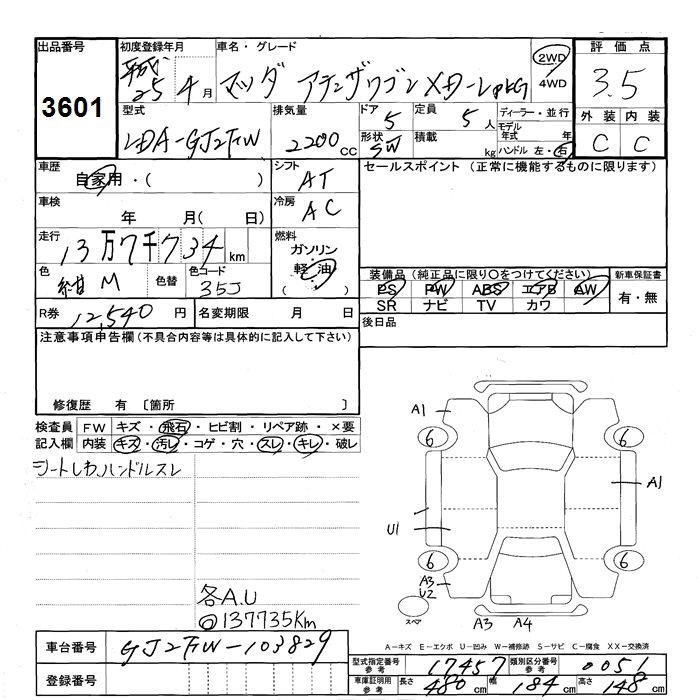 出品番号
3601
初度登録年月
平成 25 4 月
車名・グレード
マツダ アテンザワゴン XD-L PKG
2WD
4WD
評価点
3.5
型式
LDA-GJ2FW
排気量
2200 CC
ドア 5
形状 SW
定員 5 人
積載 kg
ディーラー・並行
モデル年式 年
ハンドル 左・右
外装 内装
C C
車歴
自家用・( )
シフト
AT
セールスポイント (正常に機能するものに限ります)
車検
年 月( 日)
冷房
AC
走行
13万7千734 km
燃料
ガソリン
軽油
( )
色
紺M
色替
色コード
35J
装備品(純正品に限り○をつけてください)
PS PW ABS エアB AW
SR ナビ TV カワ
新車保証書
有・無
R券 12,540 円
名変期限 月 日
後日品
注意事項申告欄(不具合内容等は具体的に記入して下さい)
修復歴 有 〔箇所 〕
検査員記入欄
FW キズ・飛石・ヒビ割・リペア跡・×要
内装 キズ・汚レ・コゲ・穴・スレ・キレ・破レ
シートしわ.ハンドルスレ
各A.U
◎137735Km
A1
6
6
A1
U1
6
6
A3
U2
スペア
A3 A4
A-キズ E-エクボ U-凹み W-補修跡 S-サビ C-腐食 XX-交換済
車台番号
GJ2FW-103829
登録番号
型式指定番号参考 17457
類別区分番号参考 0051
車庫証明用参考 長さ 480 cm 幅 184 cm 高さ 148 cm